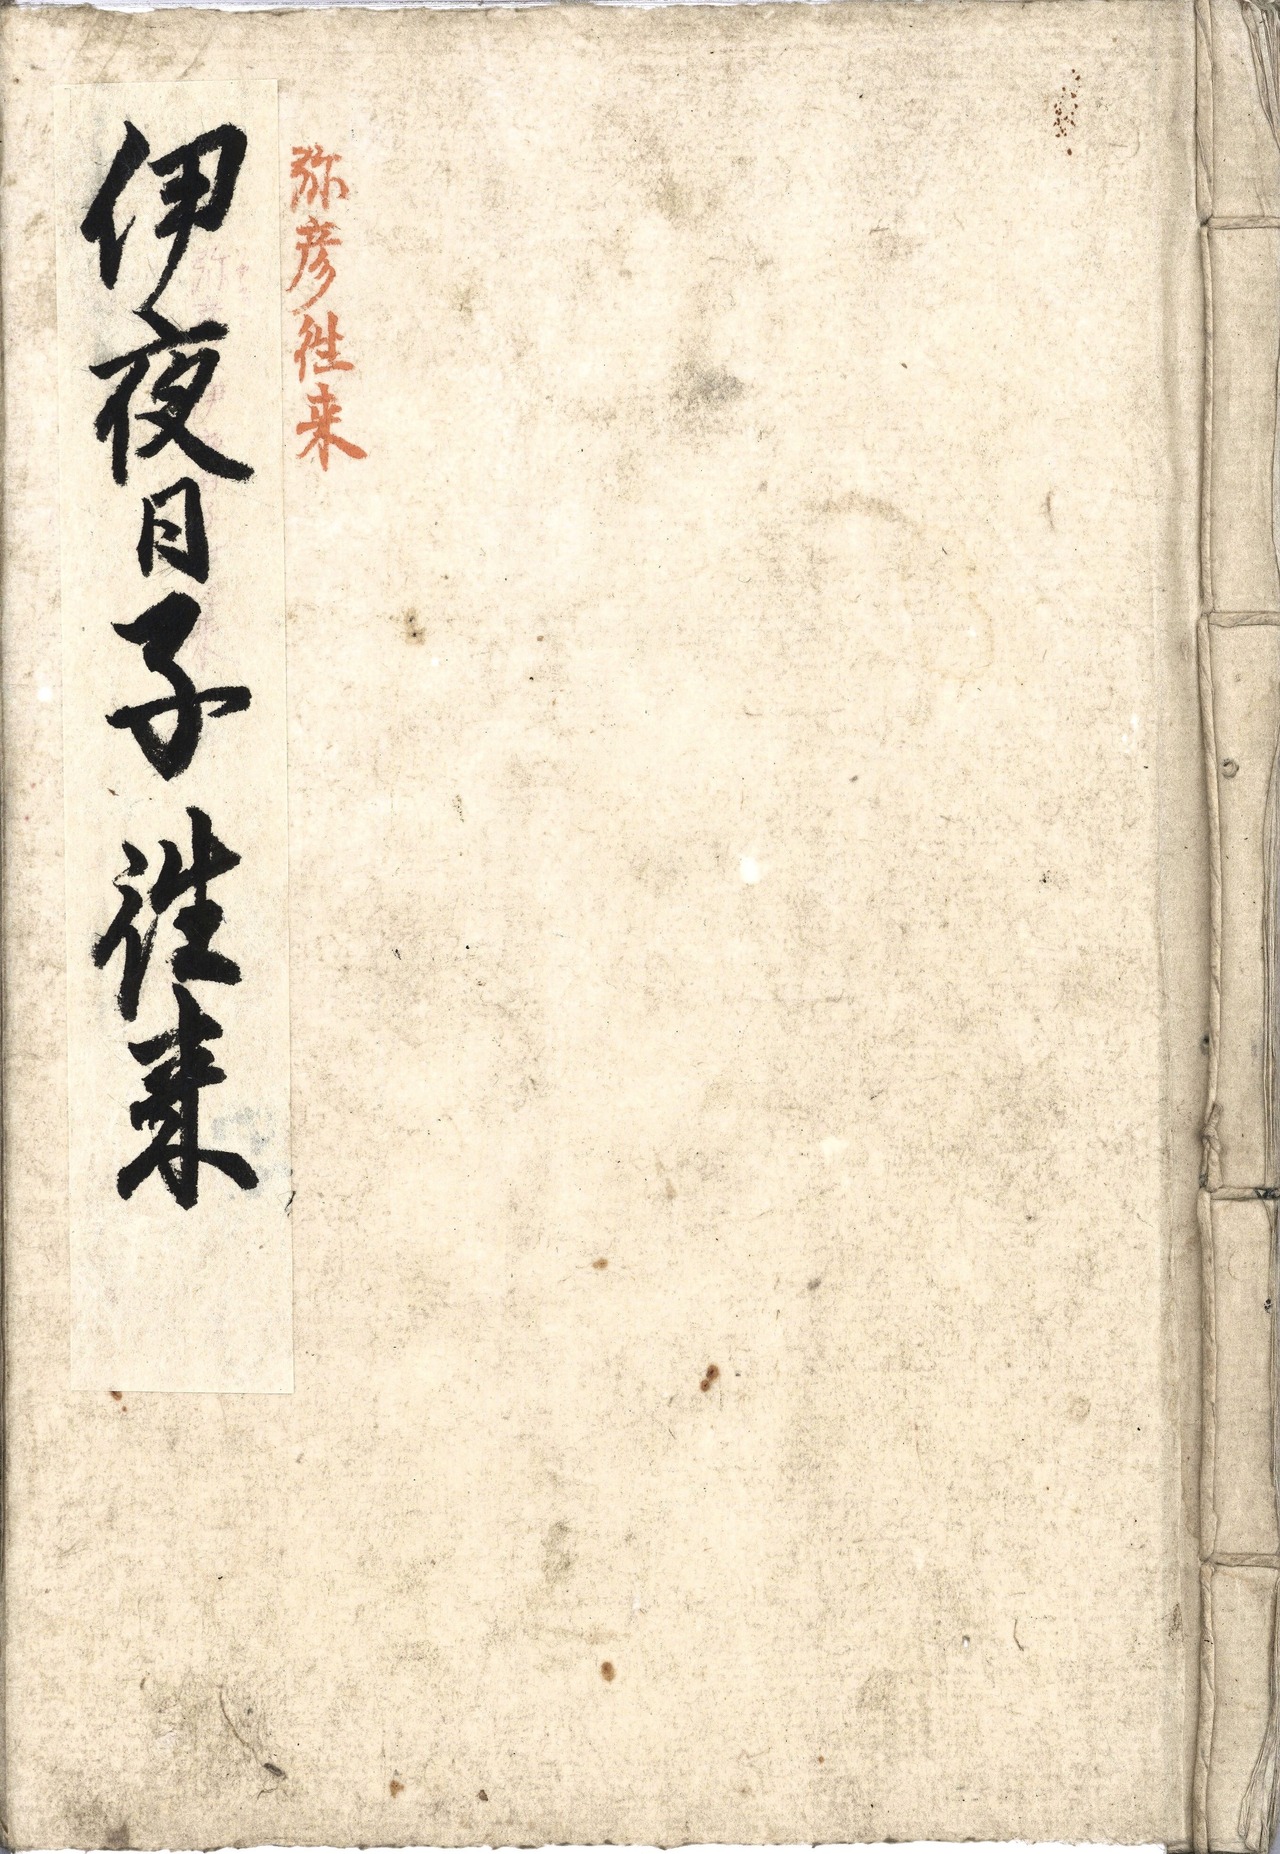 弥彦徃来
伊夜日子徃来